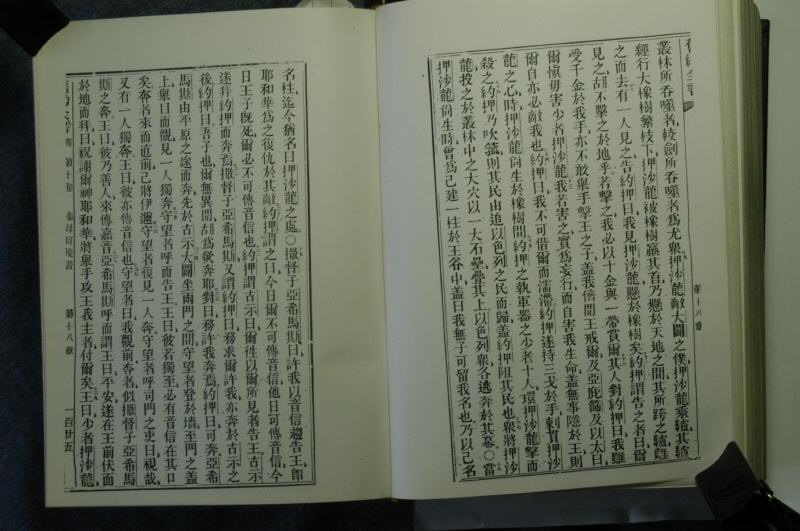 叢林所吞噬者較劍所吞噬者爲尤衆押沙龍敵大闢之僕押沙龍乘驢其驢
經行大橡樹繁枝下押沙龍被橡樹羸其首乃懸於天地之間其所跨之驢離
之而去有一人見之告約押曰我見押沙龍懸於橡樹矣約押謂告之者曰爾
見之胡不擊之於地乎若擊之我必以十金與一帶賞爾其人對約押曰我雖
受千金於我手亦不敢舉手擊王之子蓋我儕聞王戒爾及亞庇篩及以太曰
爾愼毋害少者押沙龍我若害之實爲妄行而自害我生命蓋無事隱於王則
爾自亦必敵我也約押曰我不可偕爾而濡滯約押遂持三戈於手刺貫押沙
龍之心時押沙龍尙生於橡樹間約押之執軍器之少者十人環押沙龍擊而
殺之約押乃吹箛則其民由追以色列之民而歸蓋約押阻其民也衆將押沙
龍投之於叢林中之大穴以一大石壘疊其上以色列衆各逃奔於其幕〇當
押沙龍尙生時曾爲己建一柱於王谷中蓋曰我無子可留我名也乃以己名
第十八章
名柱迄今猶名曰押沙龍之處〇撒督子亞希馬斯曰許我以音信趨告王卽
耶和華爲之復仇於其敵約押謂之曰今日爾不可傳音信他日可傳音信今
日王子旣死爾必不可傳音信也約押謂古示曰爾往以爾所見者告王古示
遂拜約押而奔焉撒督子亞希馬斯又謂約押曰務求爾許我亦奔於古示之
後約押曰吾子也爾無異聞胡爲欲奔耶對曰務許我奔焉約押曰可奔亞希
馬斯由平原之途而奔先於古示大闢坐兩門之間守望者登於墻至門之蓋
上舉目而觀見一人獨奔守望者呼而告王王曰彼若獨至必有音信在其口
矣奔者來而直前已將伊邇守望者復見一人奔守望者呼司門之吏曰視哉
又有一人獨奔王曰彼亦傳音信也守望者曰我觀前奔者似撒督子亞希馬
斯之奔王曰彼乃善人來傳嘉音亞希馬斯呼而謂王曰平安遂在王前伏面
於地而拜曰祝謝爾神耶和華將舉手攻王我主者付爾矣王曰少者押沙龍
第十卷
第十八章
一百廿五